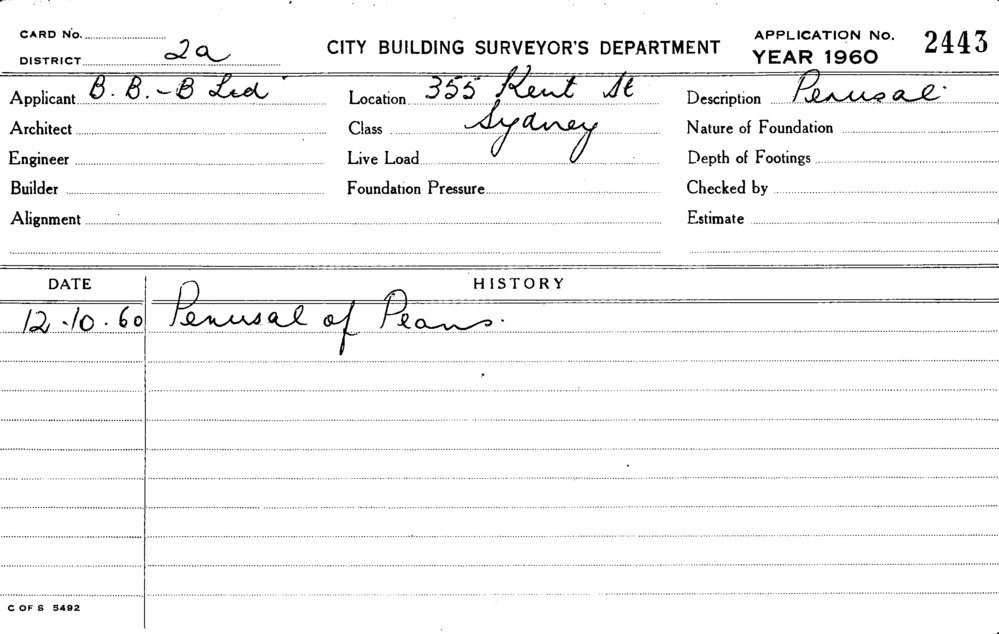 CARD No.
DISTRICT 2a
CITY BUILDING SURVEYOR'S DEPARTMENT
APPLICATION No. 2443
YEAR 1960
Applicant B. B. - B Ltd
Location 355 Kent St
Description Perusal.
Architect
Class Sydney
Nature of Foundation
Engineer
Live Load
Depth of Footings
Builder
Foundation Pressure
Checked by
Alignment
Estimate
DATE HISTORY
12.10.60 Perusal of Plans.
C OF S 5492